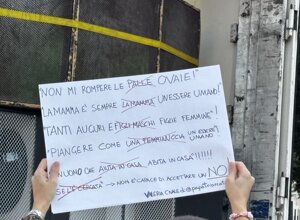 NON MI ROMPERE LE PALLE OVAIE!
LA MAMMA E' SEMPRE LA MAMMA UN ESSERE UMANO!
TANTI AUGURI E FIGLI MASCHI FIGLIE FEMMINE!
"PIANGERE COME UNA FEMMINUCCIA UN ESSERE UMANO
UN UOMO CHE AIUTA IN CASA, ABITA IN CASA!!!!!!
SE L'È CERCATA → NON È CAPACE DI ACCETTARE UN NO!